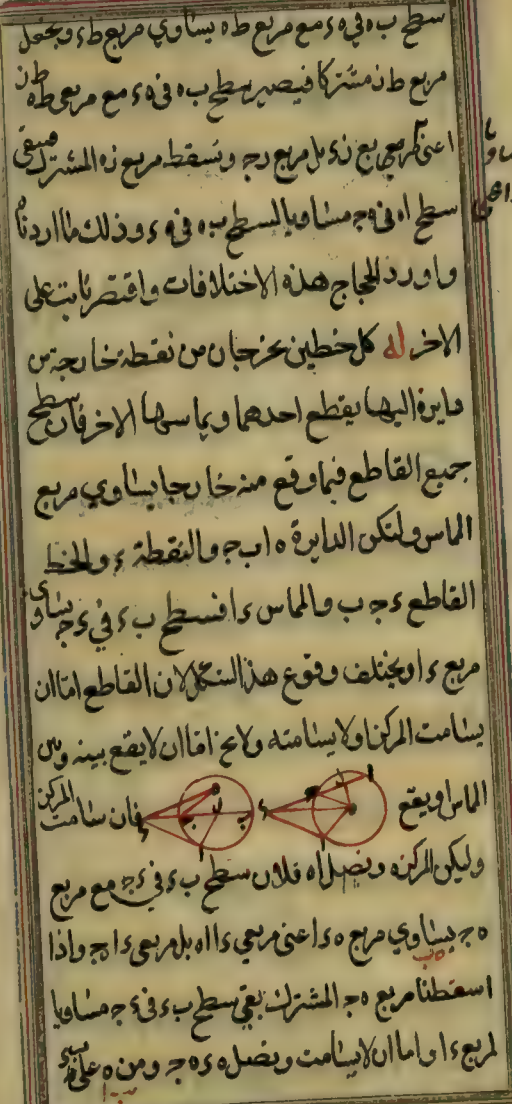 سطح ب ه في ه ء مع مربع ط ه يساوي مربع ط ء ونجعل
مربع ط ز مشتركا فيصير سطح ب ه في ه ء مع مربعي ط ه ط ز
اعني مربع ز ء بل مربع ز ج ونسقط مربع ز ه المشترك فيبقى
سطح ا ه في ه ج مساويا لسطح ب ه في ه ء وذلك ما اردناه
واورد الحجاج هذه الاختلافات واقتصر ثابت على
الاخر له كل خطين يخرجان من نقطة خارجة من
دايرة اليها يقطع احدهما ويماسها الاخر فان سطح
جميع القاطع فيما وقع منه خارجا يساوي مربع
المماس ولتكن الدايرة ه ا ب ج والنقطة ء والخط
القاطع ء ج ب والمماس ء ا فسطح ب ء في ء ج يساوي
مربع ء ا ويختلف وقوع هذا الشكل لان القاطع اما ان
يسامت المركز او لا يسامته ولا يخ اما ان لا يقع بينه وبين
المماس او يقع فان سامت المركز
وليكن المركز ه ونصل ا ه فلان سطح ب ء في ء ج مع مربع
ه ج يساوي مربع ه ء اعني مربعي ء ا ا ه بل مربعي ء ا ه ج واذا
اسقطنا مربع ه ج المشترك بقي سطح ب ء في ء ج مساويا
لمربع ء ا واما ان لا يسامت ونصل ه ء ه ج ومن ه على ب ء